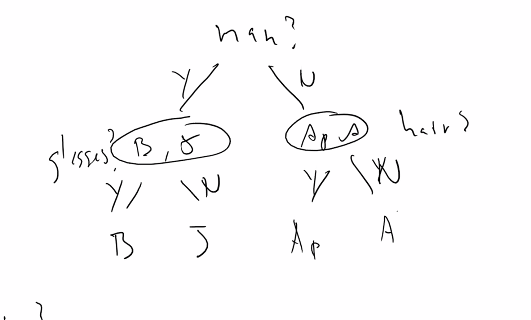 man?
Y N
glasses? B, J Ap, A hair?
Y N Y N
B J Ap A
?